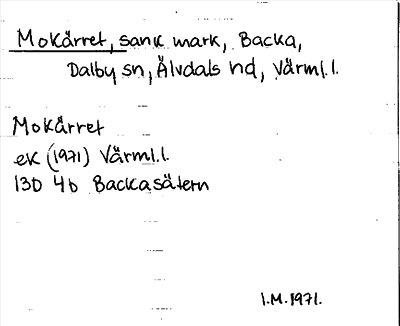 Mokärret, sank mark, Backa,
Dalby sn, Älvdals hd, Värml. l.
Mokärret
ek (1971) Värml. l.
13D 4b Backasätern
I.M. 1971.